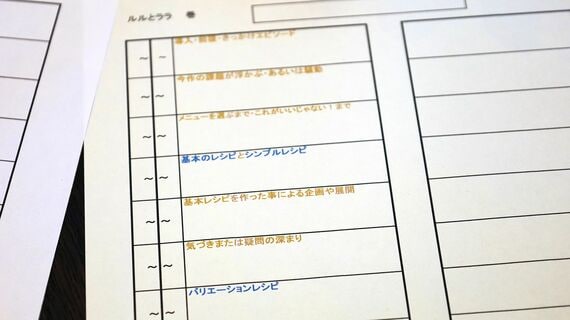 ルルとララ　巻
導入・前提・きっかけエピソード
～ ～
今作の課題が浮かぶ・あるいは騒動
～ ～
メニューを選ぶまで・これがいいじゃない！まで
～ ～
基本のレシピとシンプルレシピ
～ ～
基本レシピを作った事による企画や展開
～ ～
気づきまたは疑問の深まり
～ ～
バリエーションレシピ
～ ～